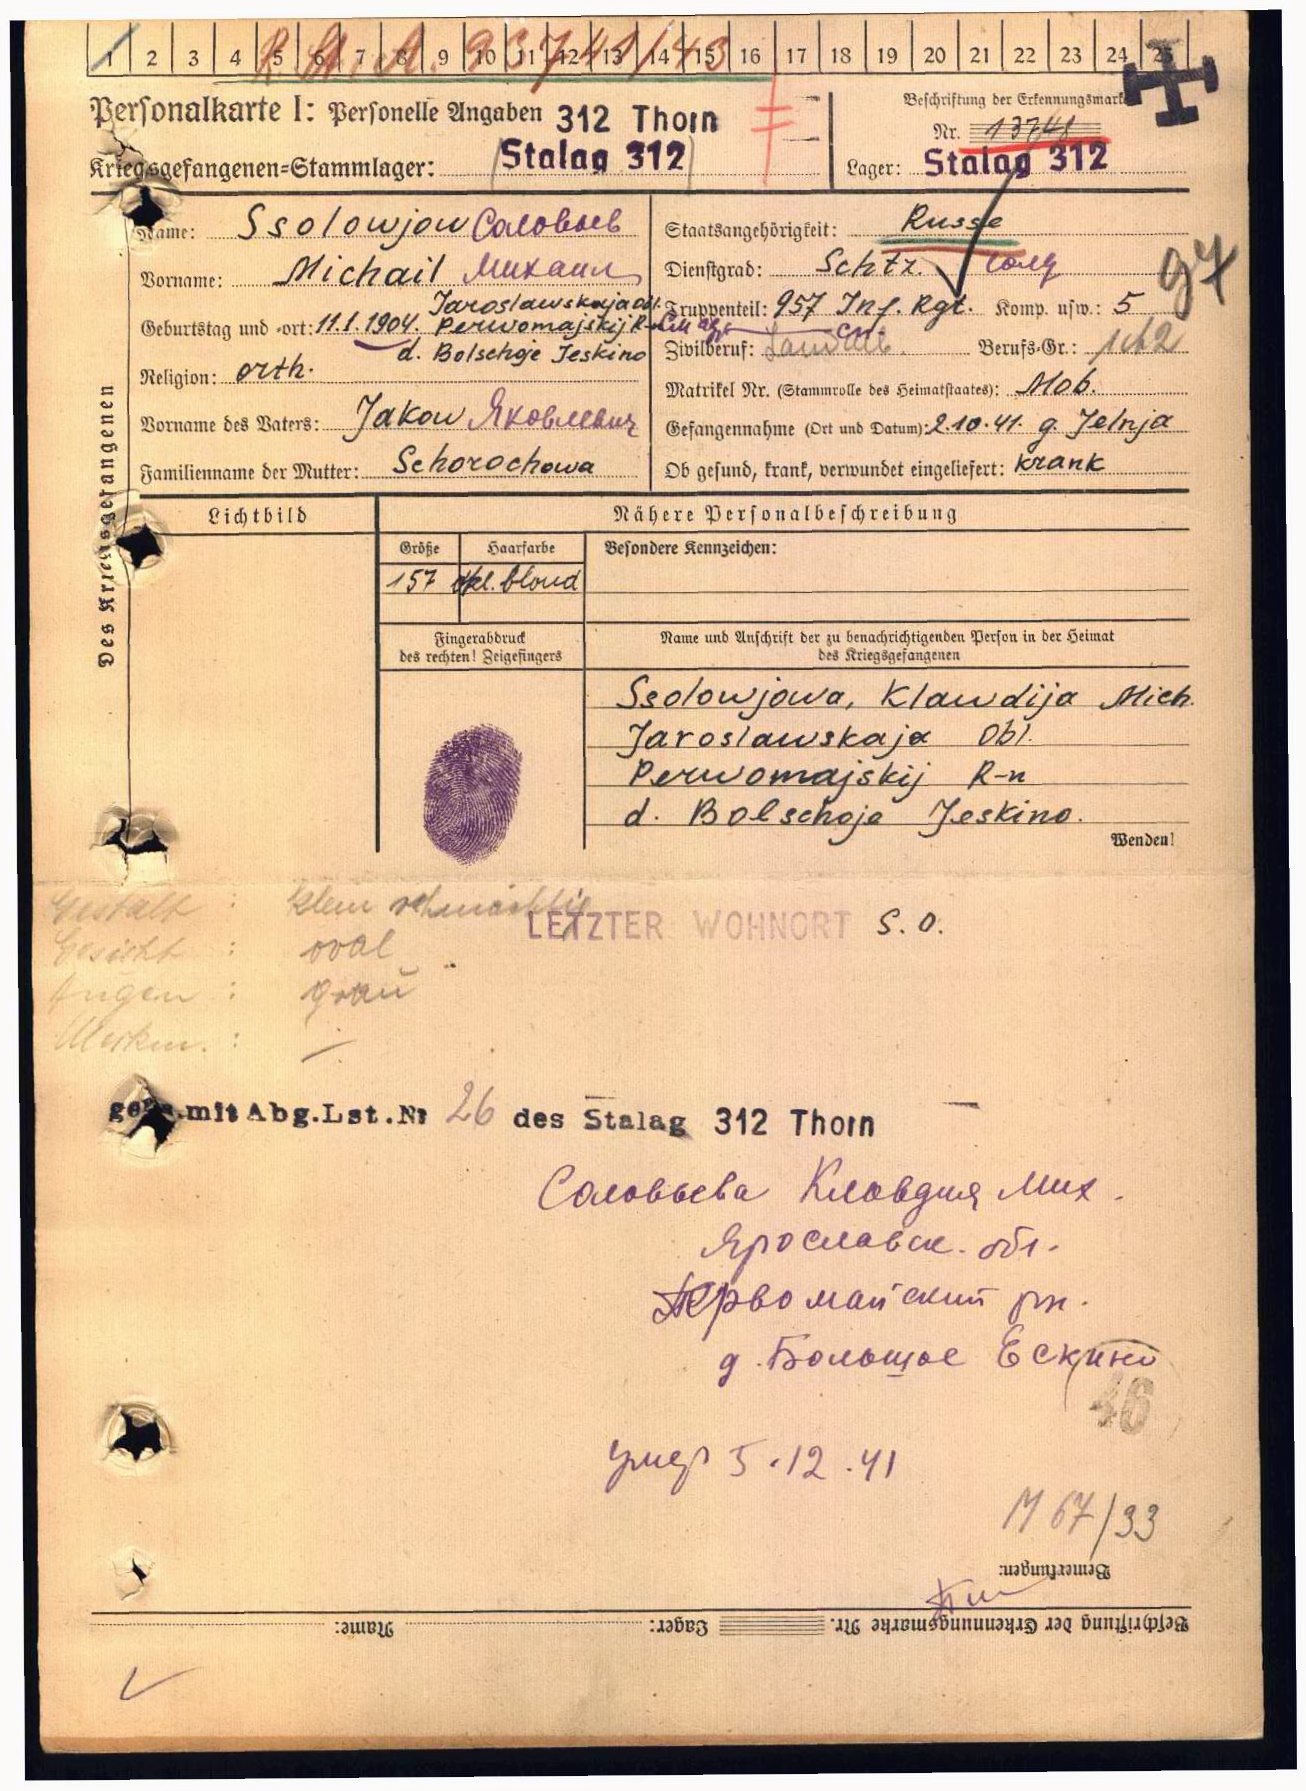 1 2 3 4 5 6 7 8 9 10 11 12 13 14 15 16 17 18 19 20 21 22 23 24 25
93741/43
Personalkarte I: Personelle Angaben 312 Thorn
Beschriftung der Erkennungsmarke
Nr. 13748
Kriegsgefangenen=Stammlager: Stalag 312
Lager: Stalag 312
Name: Ssolowjow Соловьев
Staatsangehörigkeit: Russe
Vorname: Michail Михаил
Dienstgrad: Schtz. солд
97
Geburtstag und =ort: 11.1.1904. Jaroslawskaja Obl.
Perwomajskij R-n
d. Bolschoje Jeskino
Truppenteil: 957 Inf. Rgt. Komp. usw.: 5
Zivilberuf: Berufs=Gr.:
Religion: orth.
Matrikel Nr. (Stammrolle des Heimatstaates): Mob.
Vorname des Vaters: Jakow Яковлевич
Gefangennahme (Ort und Datum): 2.10.41. g. Jelnja
Familienname der Mutter: Schorochowa
Ob gesund, krank, verwundet eingeliefert: krank
Des Kriegsgefangenen
Lichtbild
Nähere Personalbeschreibung
Größe
Haarfarbe
Besondere Kennzeichen:
157 dkl. blond
Fingerabdruck
des rechten! Zeigefingers
Name und Anschrift der zu benachrichtigenden Person in der Heimat
des Kriegsgefangenen
Ssolowjowa, Klawdija Mich.
Jaroslawskaja Obl.
Perwomajskij R-n
d. Bolschoje Jeskino.
Wenden!
Gestalt : klein schmächtig
LETZTER WOHNORT S. O.
Gesicht : oval
Augen : grau
Merkm. : —
gem. mit Abg.Lst.Nr 26 des Stalag 312 Thorn
Соловьева Клавдия Мих.
Ярославск. обл.
Первомайский рн.
д. Большое Ескино
46
умер 5.12.41
M 67/33
Bemerkungen:
Beschriftung der Erkennungsmarke Nr. Lager: Name: